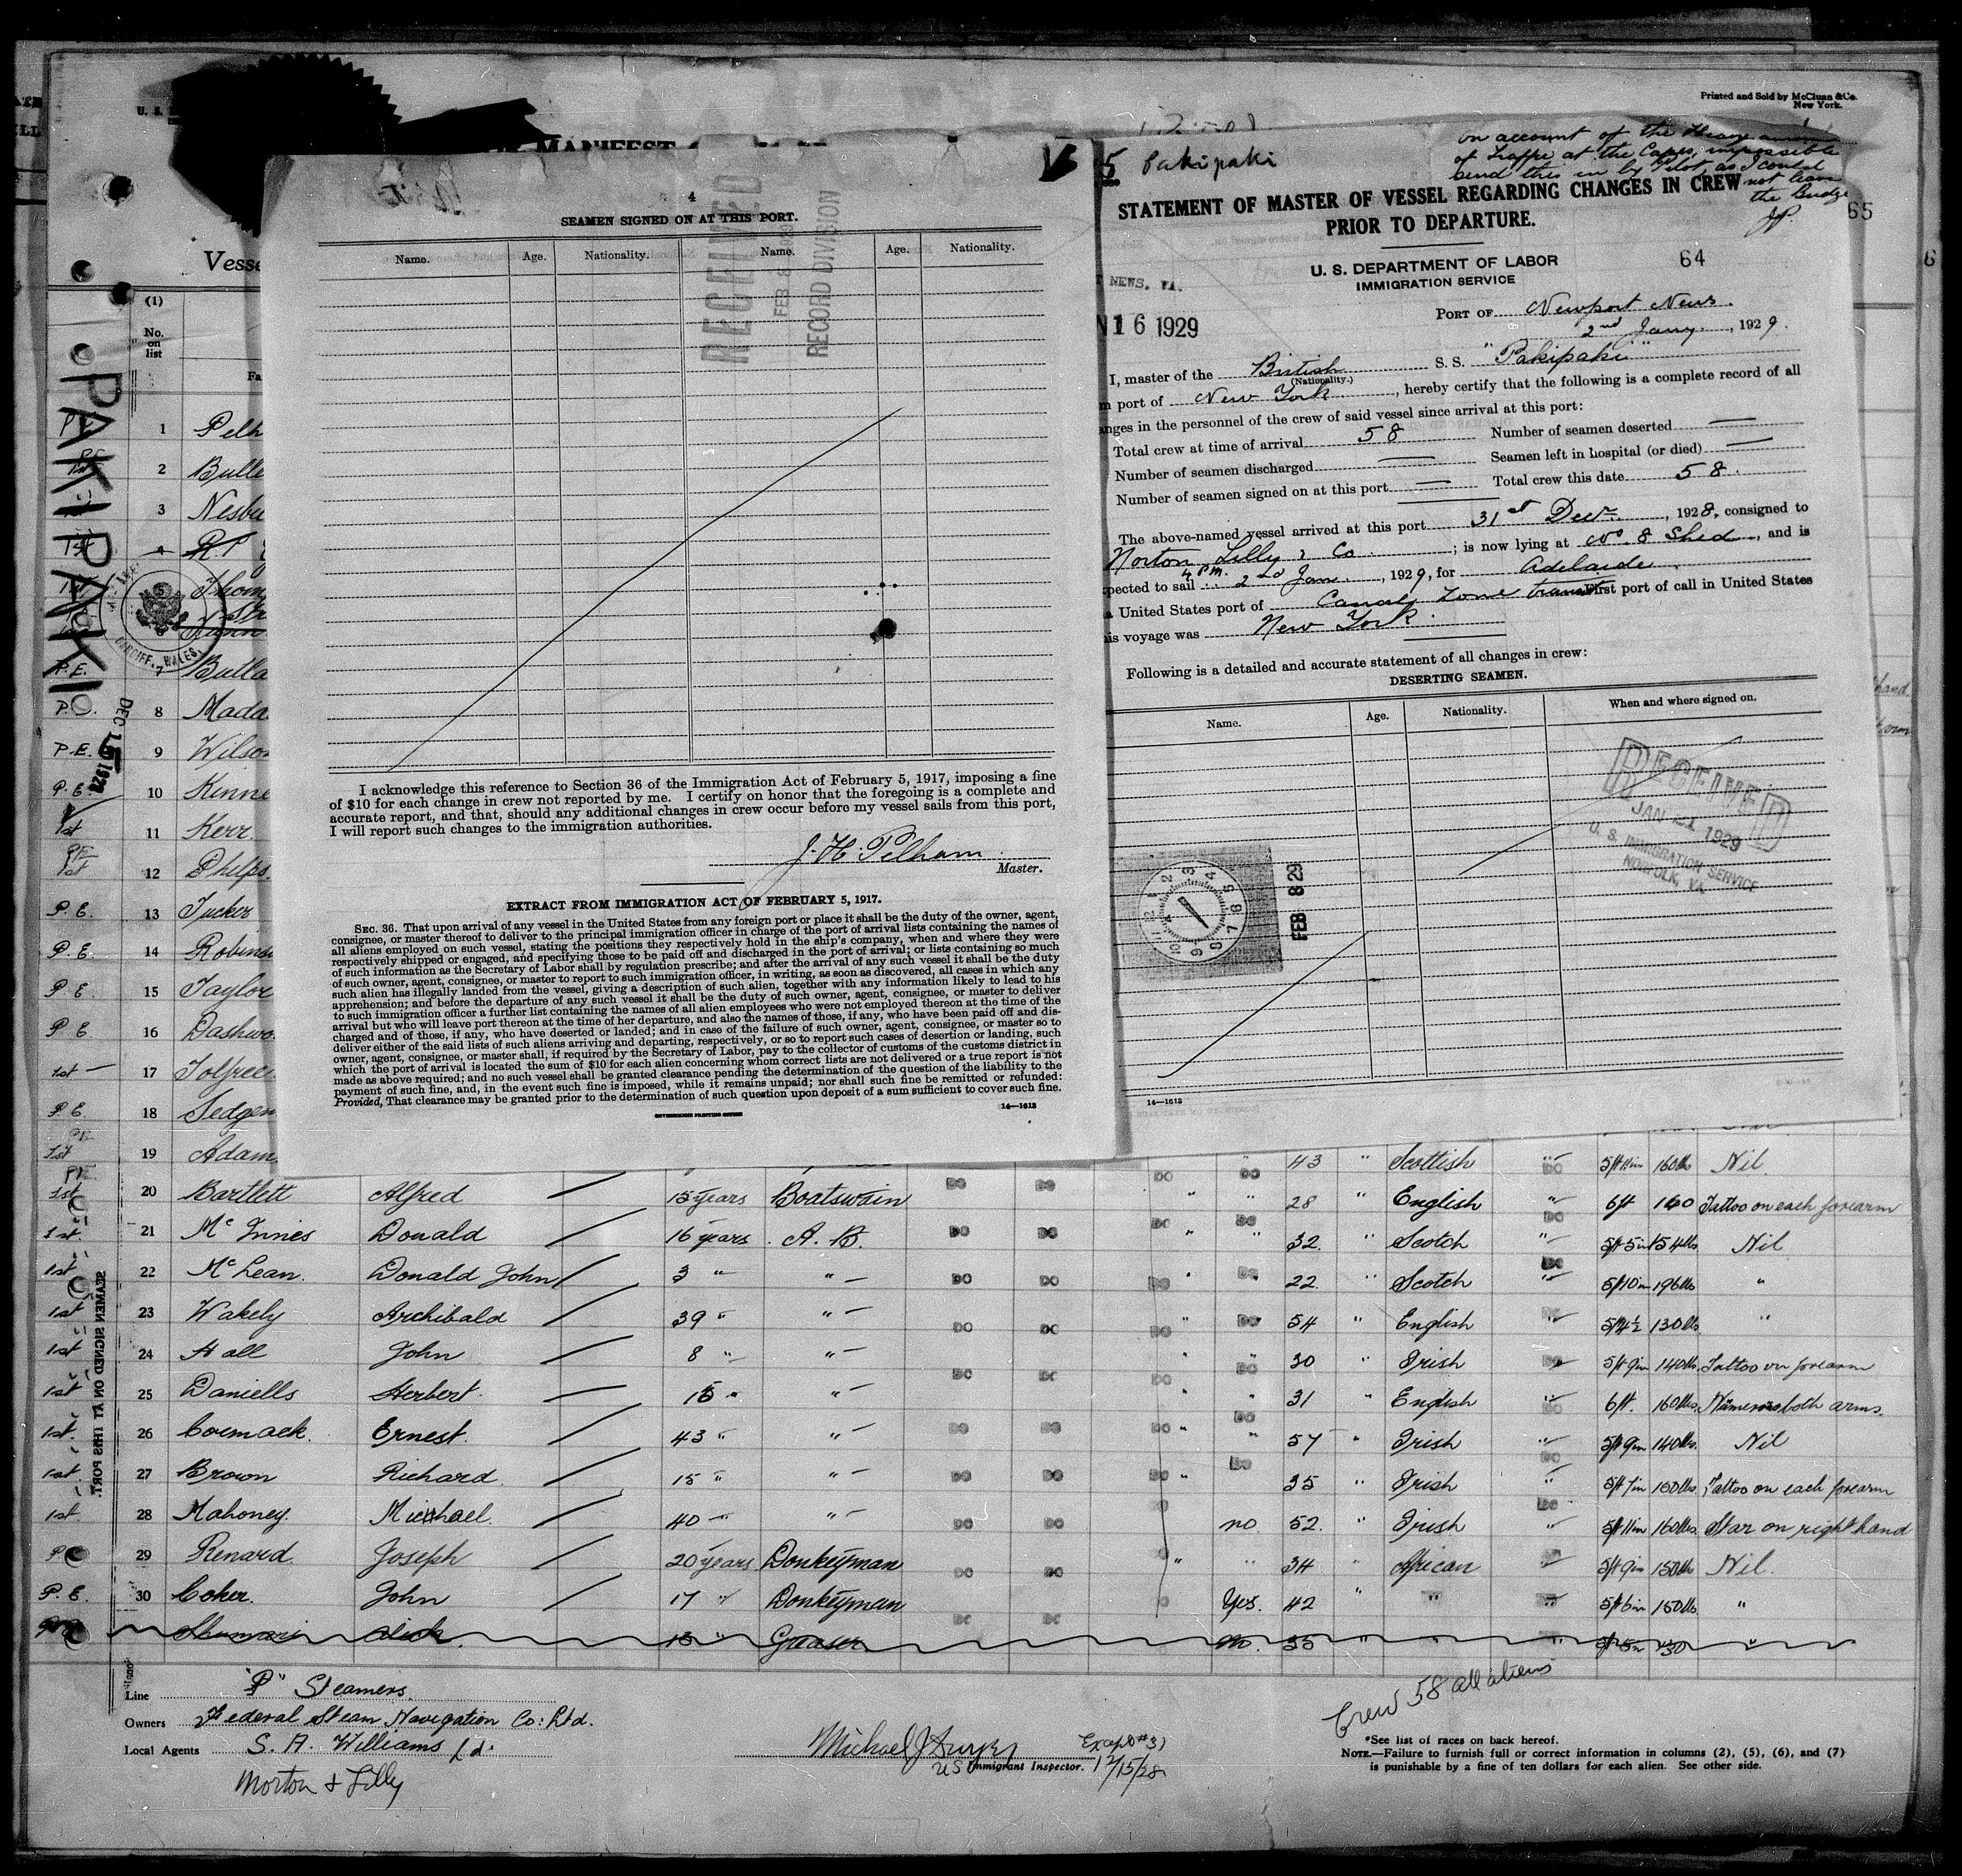 Printed and Sold by McClunn & Co.
New York.
U. S.
MANIFEST
Vesse
(1)
No.
on
list
Fa
PAKIPAKI
DEC 15 1928
CARDIFF, WALES.
4
SEAMEN SIGNED ON AT THIS PORT.
Name. Age. Nationality. Name. Age. Nationality.
RECEIVED
FEB 8 1929
RECORD DIVISION
I acknowledge this reference to Section 36 of the Immigration Act of February 5, 1917, imposing a fine
of $10 for each change in crew not reported by me. I certify on honor that the foregoing is a complete and
accurate report, and that, should any additional changes in crew occur before my vessel sails from this port,
I will report such changes to the immigration authorities.
J. H. Pelham
Master.
EXTRACT FROM IMMIGRATION ACT OF FEBRUARY 5, 1917.
SEC. 36. That upon arrival of any vessel in the United States from any foreign port or place it shall be the duty of the owner, agent,
consignee, or master thereof to deliver to the principal immigration officer in charge of the port of arrival lists containing the names of
all aliens employed on such vessel, stating the positions they respectively hold in the ship's company, when and where they were
respectively shipped or engaged, and specifying those to be paid off and discharged in the port of arrival; or lists containing so much
of such information as the Secretary of Labor shall by regulation prescribe; and after the arrival of any such vessel it shall be the duty
of such owner, agent, consignee, or master to report to such immigration officer, in writing, as soon as discovered, all cases in which any
such alien has illegally landed from the vessel, giving a description of such alien, together with any information likely to lead to his
apprehension; and before the departure of any such vessel it shall be the duty of such owner, agent, consignee, or master to deliver
to such immigration officer a further list containing the names of all alien employees who were not employed thereon at the time of the
arrival but who will leave port thereon at the time of her departure, and also the names of those, if any, who have been paid off and dis-
charged and of those, if any, who have deserted or landed; and in case of the failure of such owner, agent, consignee, or master so to
deliver either of the said lists of such aliens arriving and departing, respectively, or so to report such cases of desertion or landing, such
owner, agent, consignee, or master shall, if required by the Secretary of Labor, pay to the collector of customs of the customs district in
which the port of arrival is located the sum of $10 for each alien concerning whom correct lists are not delivered or a true report is not
made as above required; and no such vessel shall be granted clearance pending the determination of the question of the liability to the
payment of such fine, and, in the event such fine is imposed, while it remains unpaid; nor shall such fine be remitted or refunded:
Provided, That clearance may be granted prior to the determination of such question upon deposit of a sum sufficient to cover such fine.
GOVERNMENT PRINTING OFFICE
14—1613
5 Pakipaki
on account of the Heavy amount
of Traffic at the Capes, impossible
send this in by Pilot, as I could
not leave
the Bridge
JP
65
STATEMENT OF MASTER OF VESSEL REGARDING CHANGES IN CREW
PRIOR TO DEPARTURE.
U. S. DEPARTMENT OF LABOR
IMMIGRATION SERVICE
64
T NEWS, VA.
N 16 1929
PORT OF Newport News.
2nd Jany. , 1929.
I, master of the British S. S. "Pakipaki"
(Nationality.)
m port of New York, hereby certify that the following is a complete record of all
anges in the personnel of the crew of said vessel since arrival at this port:
Total crew at time of arrival 58 Number of seamen deserted —
Number of seamen discharged — Seamen left in hospital (or died) —
Number of seamen signed on at this port — Total crew this date 58.
The above-named vessel arrived at this port 31st Decr. , 1928, consigned to
Norton Lilly & Co ; is now lying at No. 8 Shed , and is
pected to sail 4 P.M. 2nd Jan , 1929, for Adelaide
a United States port of Canal Zone transit First port of call in United States
is voyage was New York.
Following is a detailed and accurate statement of all changes in crew:
DESERTING SEAMEN.
Name. Age. Nationality. When and where signed on.
RECEIVED
JAN 21 1929
U. S. IMMIGRATION SERVICE
NORFOLK, VA.
FEB 8 29
14—1613
P.E. 1 Pelh
2 Bulle
3 Nesbi
1st 4
Thom
P.E. 7 Bulla
P.E. 8 Mada
P.E. 9 Wilso
P.E. 10 Kinne
1st 11 Kerr.
1st 12 Phelps.
P.E. 13 Tucker
P.E. 14 Robins
P.E. 15 Taylor
P.E. 16 Dashwo
1st 17 Tolfree
P.E. 18 Sedgen
1st 19 Adam 43 " Scottish " 5ft 11in 160lbs Nil.
1st 20 Bartlett Alfred 15 years Boatswain DO DO DO " " 28 " English " 6ft 160 Tattoo on each forearm
1st 21 McInnes Donald 16 years A. B. DO DO DO " " 32 " Scotch " 5ft 5in 154lbs Nil
1st 22 McLean. Donald John 3 " " DO DO DO " " 22 " Scotch " 5ft 10in 196lbs "
1st 23 Wakely Archibald 39 " " DO DO DO " " 54 " English " 5ft 4½ 130lbs "
1st 24 Hall John 8 " " DO DO DO " " 30 " Irish " 5ft 9in 140lbs. Tattoo on forearm
1st 25 Daniells Herbert. 15 " " DO DO DO " " 31 " English " 6ft. 160lbs. Names on both arms.
1st 26 Cormack. Ernest. 43 " " DO DO DO " " 57 " Irish " 5ft 9in 140lbs. Nil
1st 27 Brown Richard 15 " " DO DO DO " 35 " Irish " 5ft 7in 150lbs. Tattoo on each forearm
1st 28 Mahoney. Michael. 40 " " DO DO no. 52. " Irish " 5ft 11in 160lbs. Star on right hand
29 Renard. Joseph 20 years Donkeyman DO DO " " 34 " African " 5ft 9in 150lbs Nil.
P.E. 30 Coker. John 17 " Donkeyman Yes. 42 " " " 5ft 6in 150lbs "
13 " Greaser no. 35 " " " 5ft 5in 130 "
SEAMEN SIGNED ON AT THIS PORT.
Line "P" Steamers.
Owners Federal Steam Navigation Co: Ltd.
Local Agents S. A. Williams Ld.
Norton & Lilly
Except #31
US Immigrant Inspector. 12/15/28
Crew 58 all aliens
*See list of races on back hereof.
NOTE.—Failure to furnish full or correct information in columns (2), (5), (6), and (7)
is punishable by a fine of ten dollars for each alien. See other side.